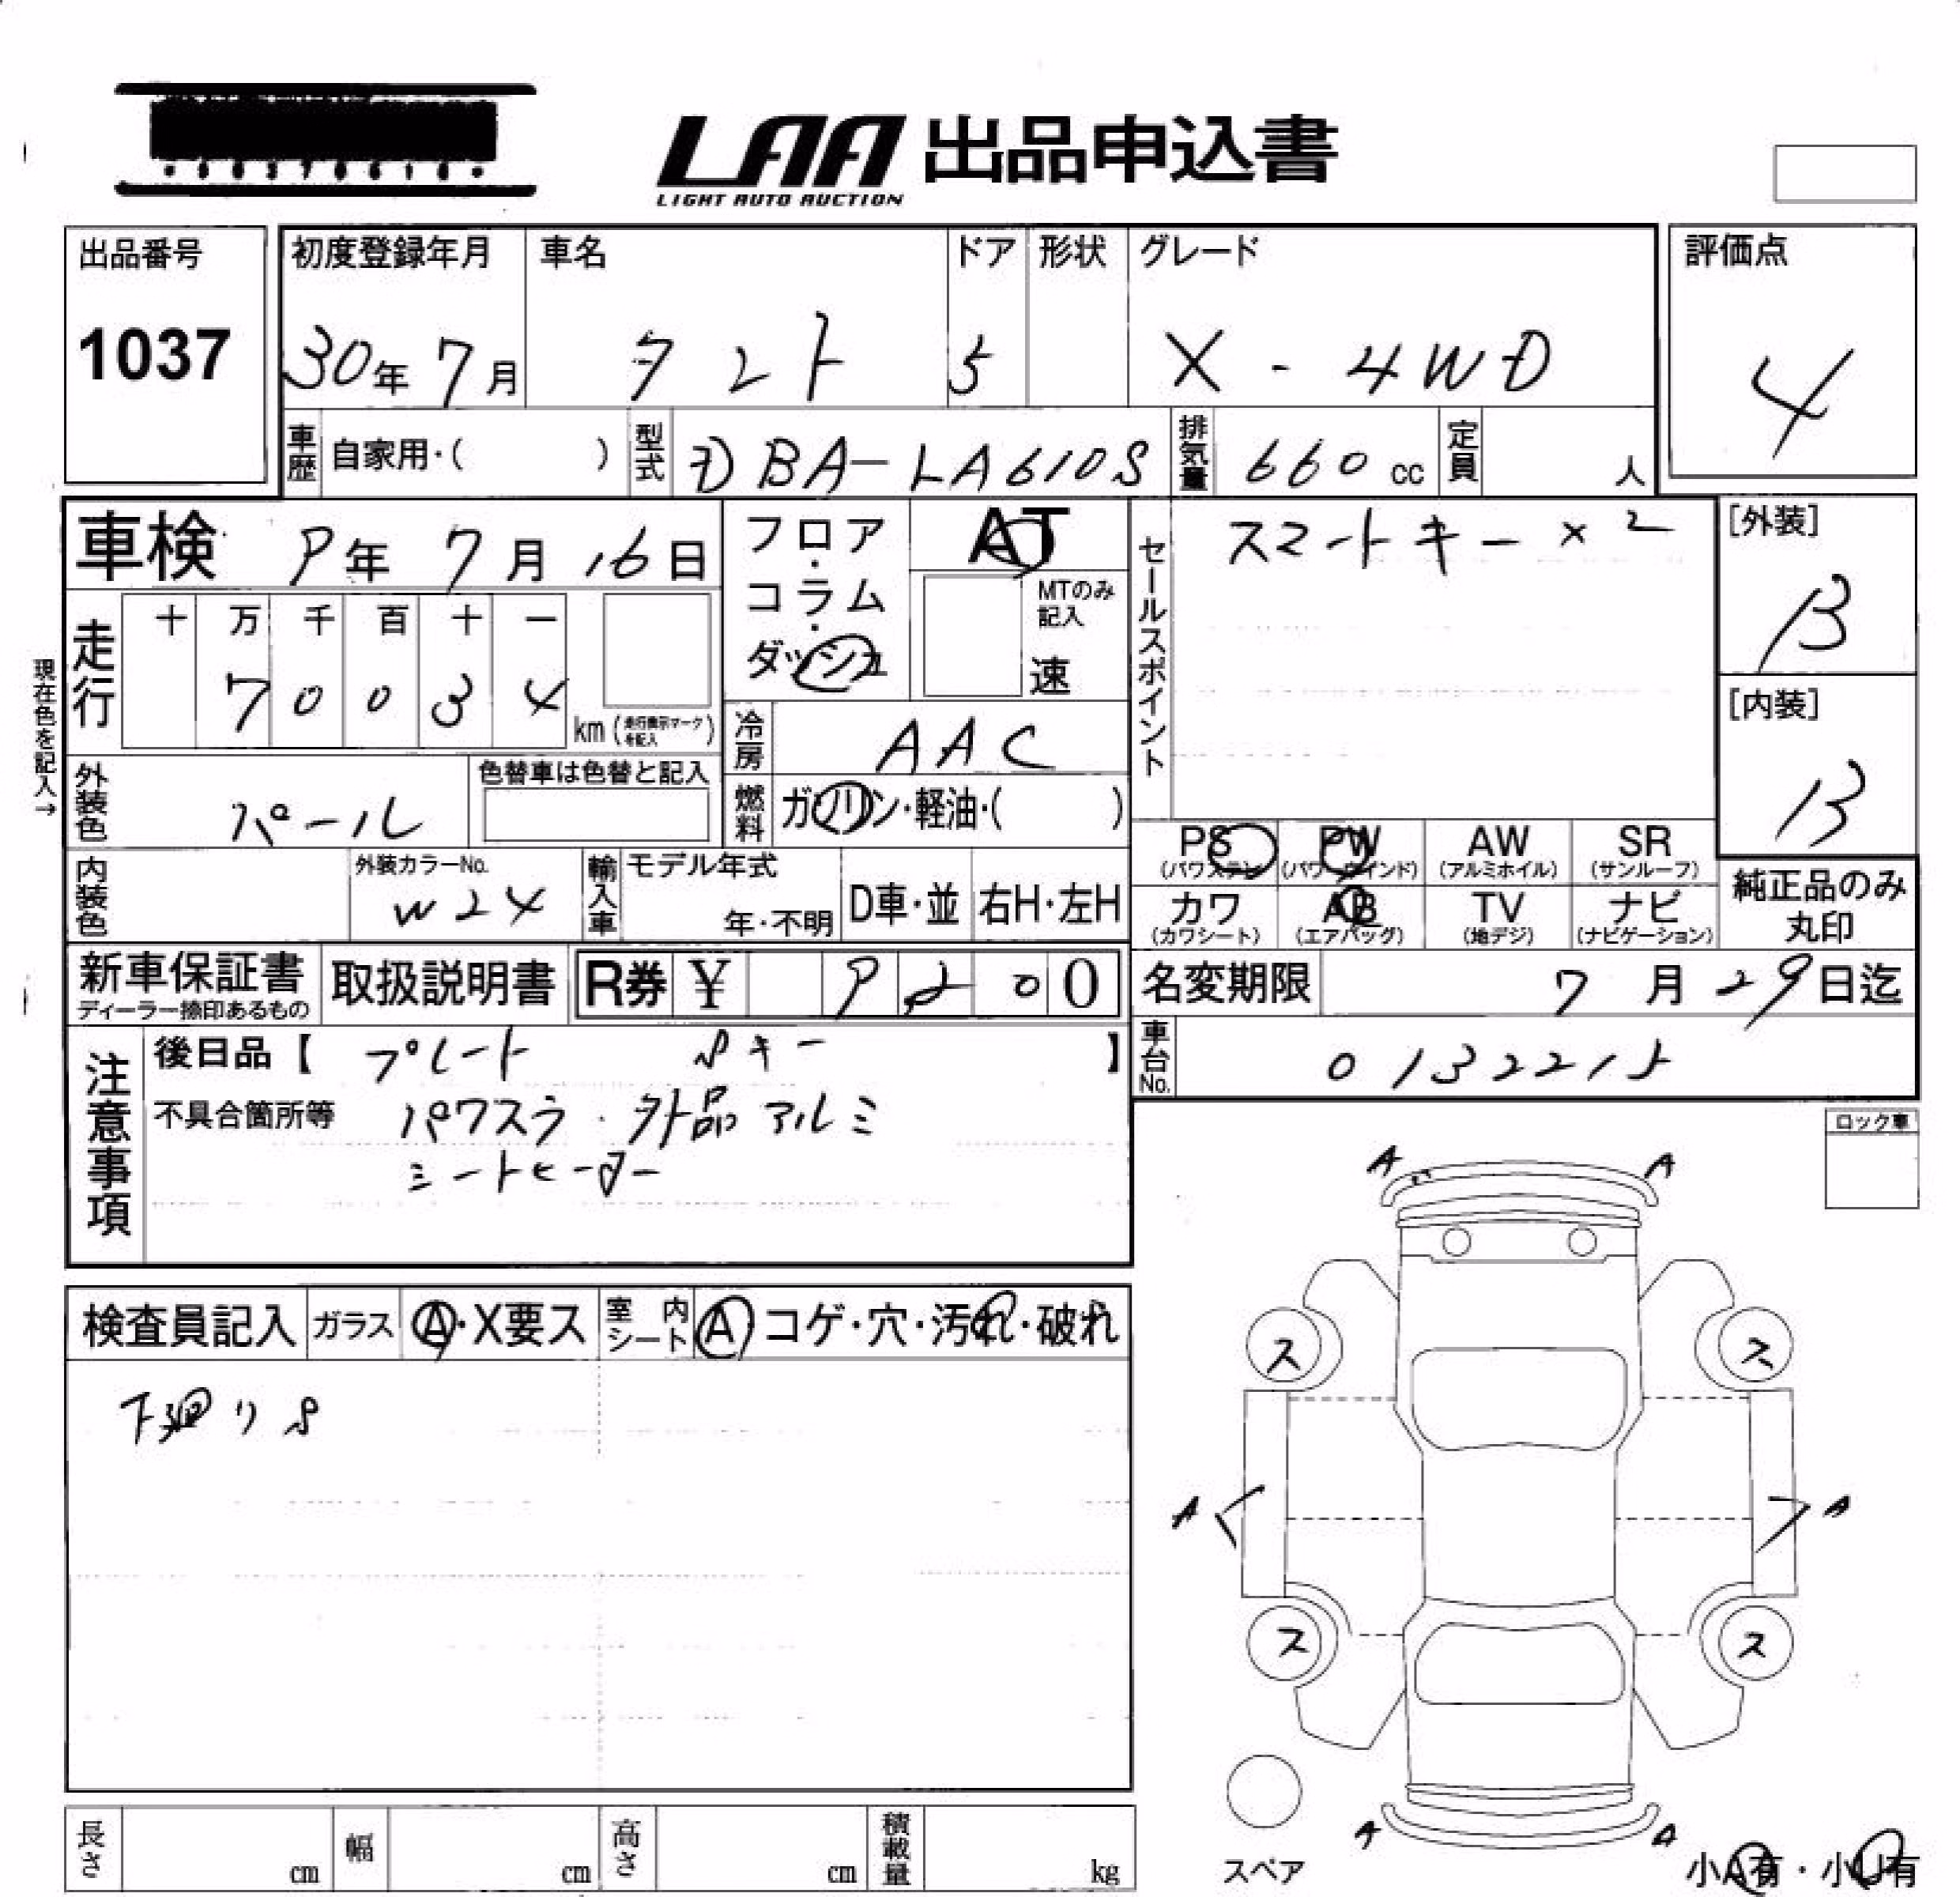 LAA 出品申込書
LIGHT AUTO AUCTION
出品番号 初度登録年月 車名 ドア 形状 グレード 評価点
1037 30年 7月 タント 5 X - 4WD 4
車歴 自家用・( ) 型式 DBA-LA610S 排気量 660 cc 定員 人
車検 9年 7月 16日 フロア・コラム・ダッシュ AT
MTのみ記入 速
走行 十 万 千 百 十 一
7 0 0 3 4 km (走行表示マークを記入)
現在色を記入→
冷房 AAC
外装色 パール 色替車は色替と記入
燃料 ガソリン・軽油・( )
内装色 外装カラーNo. W24 輸入車 モデル年式 年・不明 D車・並 右H・左H
セールスポイント スマートキー×2
[外装] B
[内装] B
PS (パワステ) PW (パワーウインド) AW (アルミホイル) SR (サンルーフ)
カワ (カワシート) AB (エアバッグ) TV (地デジ) ナビ (ナビゲーション)
純正品のみ丸印
新車保証書 ディーラー捺印あるもの 取扱説明書 R券 ¥ 9200
名変期限 7月29日迄
車台No. 0132215
注意事項
後日品【 プレート Sキー 】
不具合箇所等 パワスラ・外品アルミ
シートヒーター
ロック車
検査員記入 ガラス A・X要ス 室内シート A コゲ・穴・汚れ・破れ
下廻りS
A A
ス ス
A A
ス ス
A A
スペア
小A有・小U有
長さ cm 幅 cm 高さ cm 積載量 kg